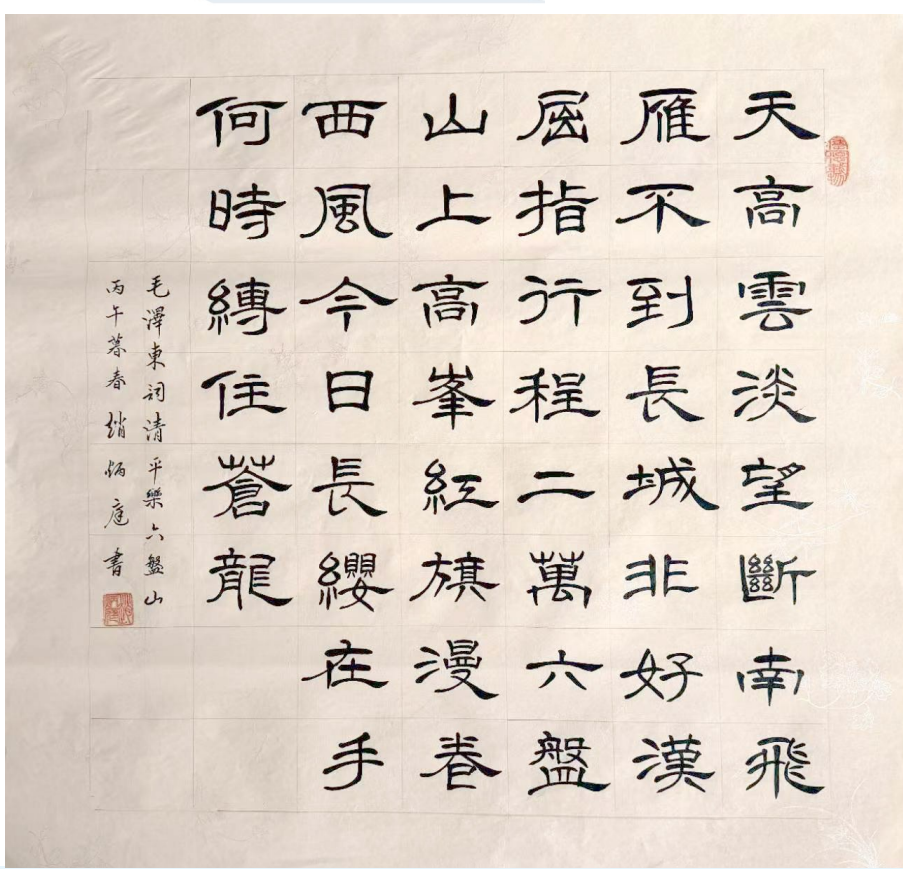 天高雲淡望斷南飛
雁不到長城非好漢
屈指行程二萬六盤
山上高峯紅旗漫卷
西風今日長纓在手
何時縛住蒼龍
毛澤東詞清平樂六盤山
丙午暮春趙炳庭書